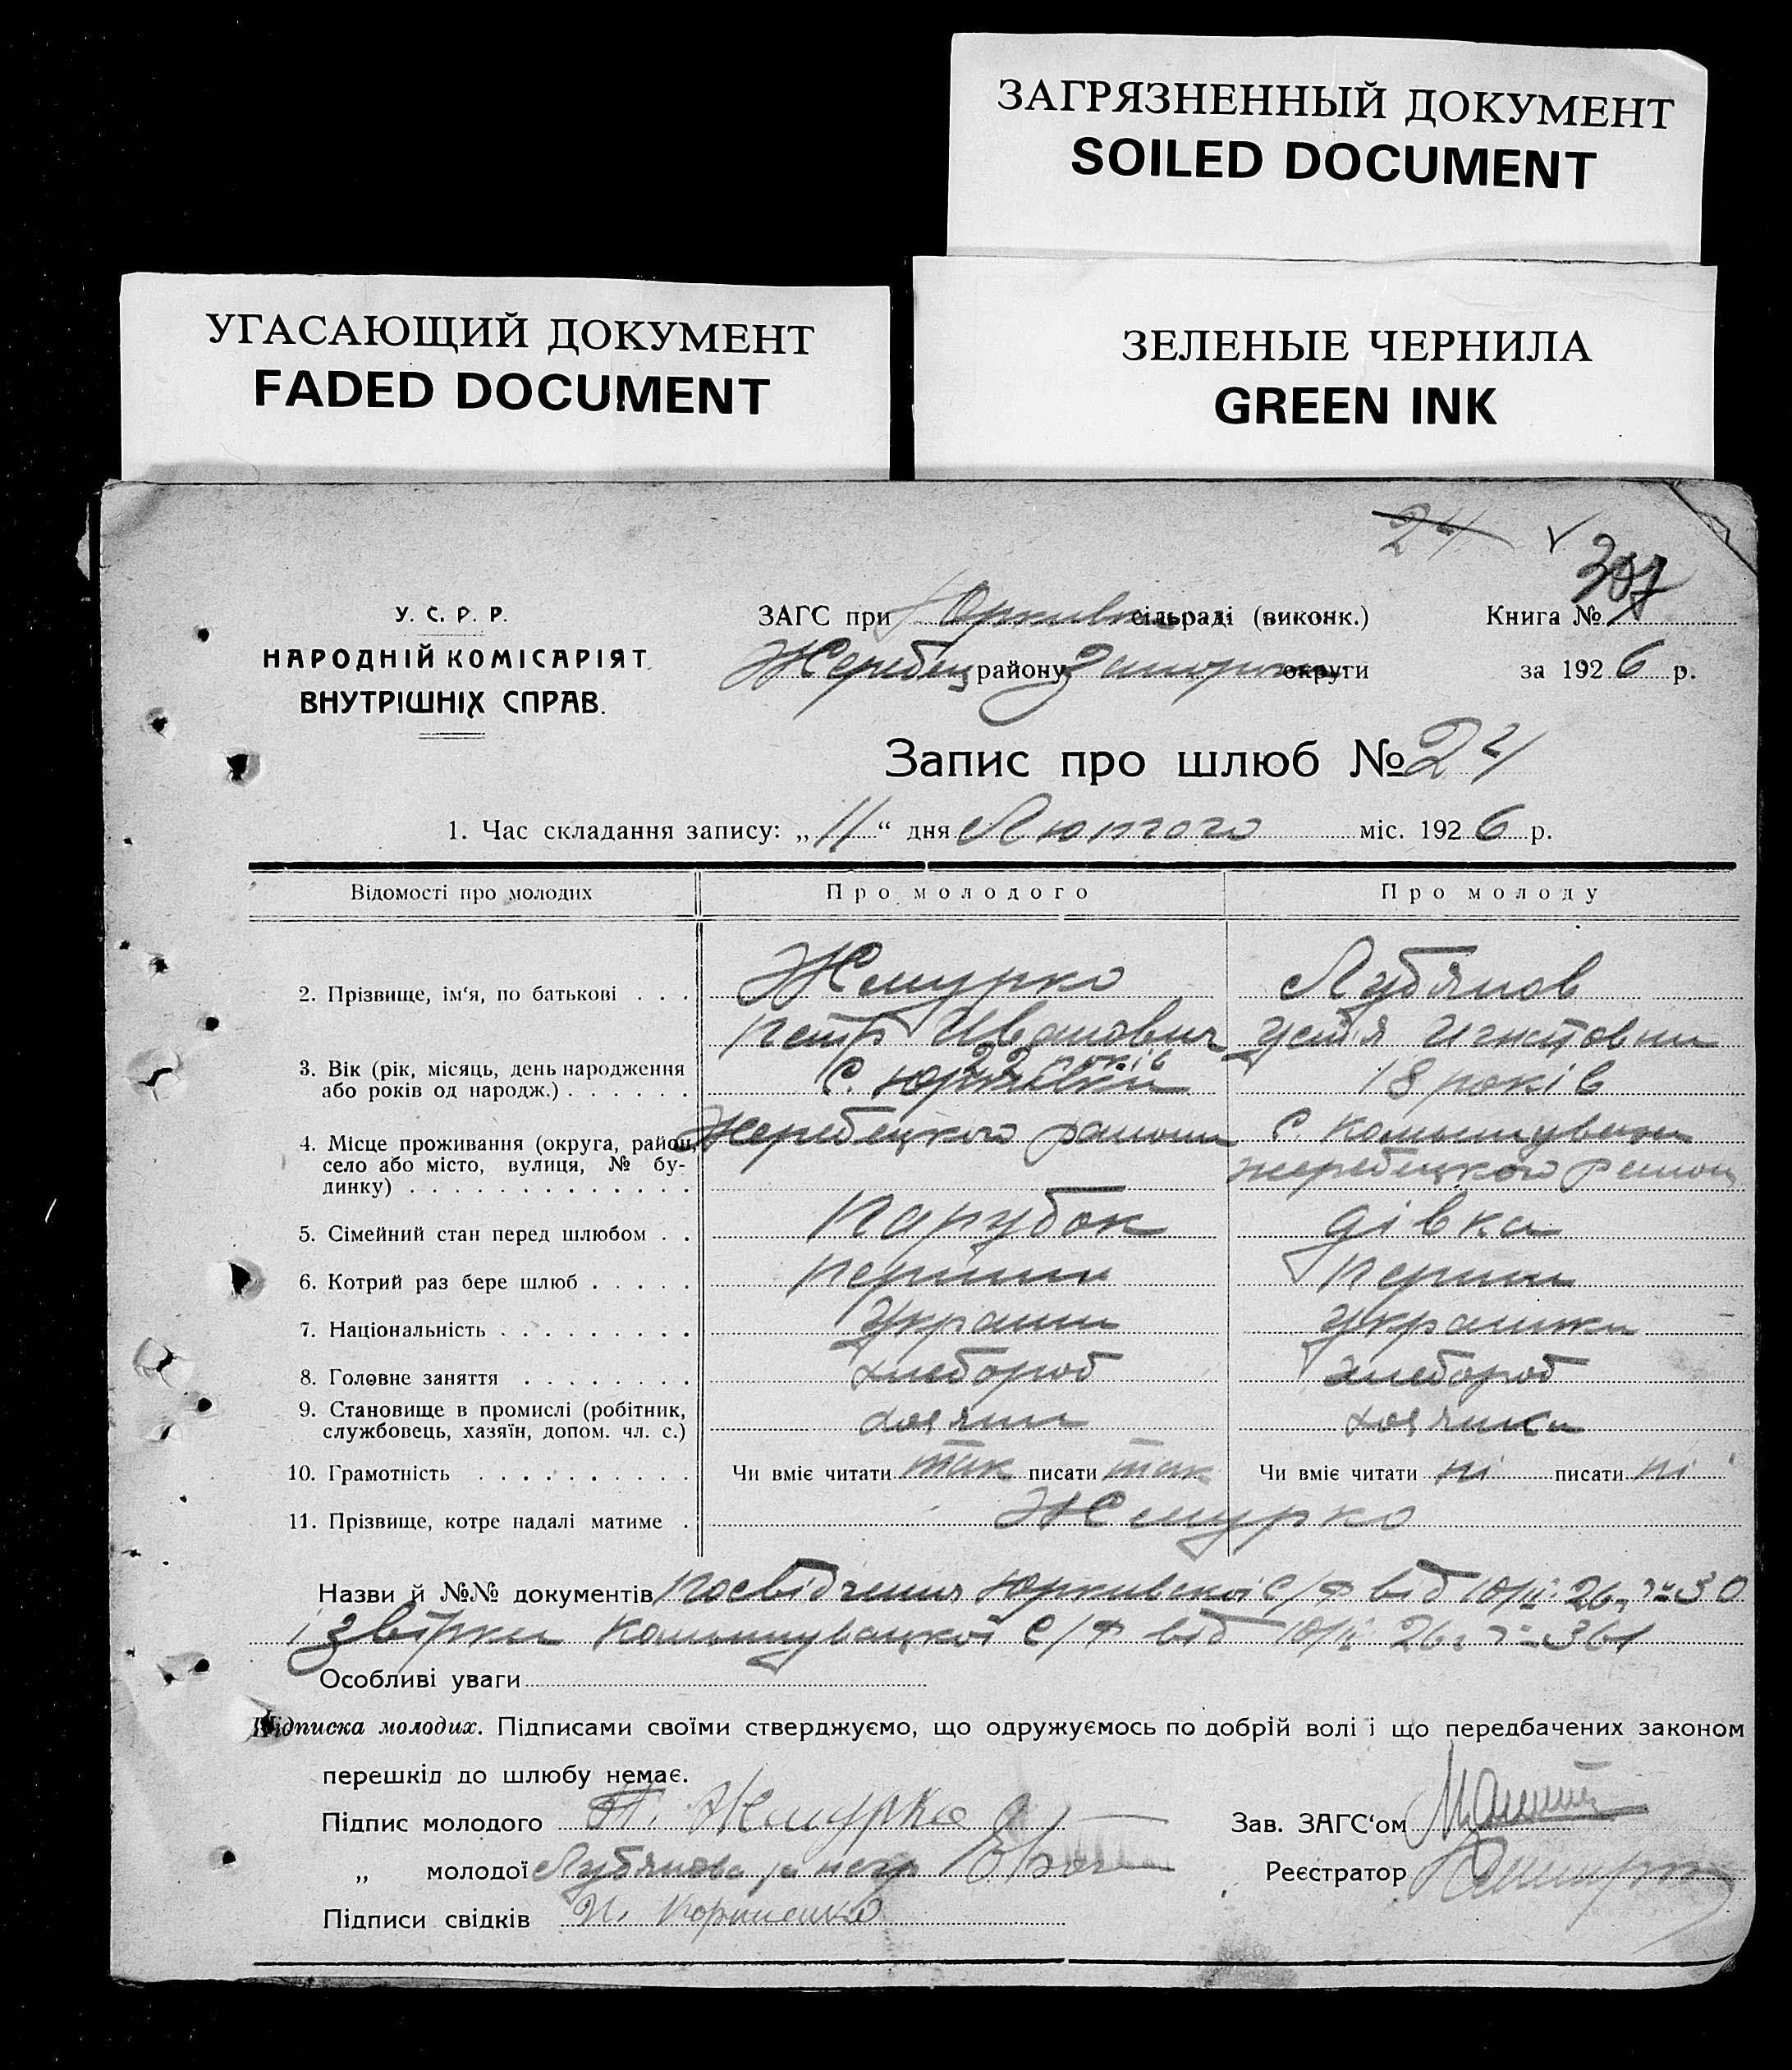 ЗАГРЯЗНЕННЫЙ ДОКУМЕНТ
SOILED DOCUMENT
УГАСАЮЩИЙ ДОКУМЕНТ
FADED DOCUMENT
ЗЕЛЕНЫЕ ЧЕРНИЛА
GREEN INK
24
У. С. Р. Р.
НАРОДНІЙ КОМІСАРІЯТ
ВНУТРІШНІХ СПРАВ.
ЗАГС при сільраді (виконк.) Книга №
Жеребец району округи за 1926 р.
Запис про шлюб № 24
1. Час складання запису: „11“ дня Лютого міс. 1926 р.
Відомості про молодих Про молодого Про молоду
2. Прізвище, ім‘я, по батькові . . . Жмурко Лубянов
Петр Иванович Устія
3. Вік (рік, місяць, день народження 22 років
або років од народж.) . . . . . . с. 18 років
4. Місце проживання (округа, район, Жеребецкого района с. Комышуваха
село або місто, вулиця, № бу- жеребецкого район
динку) . . . . . . . . . . . . .
5. Сімейний стан перед шлюбом . . Парубок дівка
6. Котрий раз бере шлюб . . . . . перший перший
7. Національність . . . . . . . . . Украин украинка
8. Головне заняття . . . . . . . . хлебороб хлебороб
9. Становище в промислі (робітник,
службовець, хазяїн, допом. чл. с.) хозяин хозяика
10. Грамотність . . . . . . . . . . Чи вміє читати так писати так Чи вміє читати ні писати ні
11. Прізвище, котре надалі матиме . Жмурко
Назви й №№ документів Посвідчення Юркивскоі С/Р від 10/II 26 30
і звірки Комышувацкоі С/Р від 10/II 26 361
Особливі уваги
Підписка молодих. Підписами своїми стверджуємо, що одружуємось по добрій волі і що передбачених законом
перешкід до шлюбу немає.
Підпис молодого П. Жмурко Зав. ЗАГС‘ом
„ молодої Лубянова Реєстратор
Підписи свідків И. Корниенко